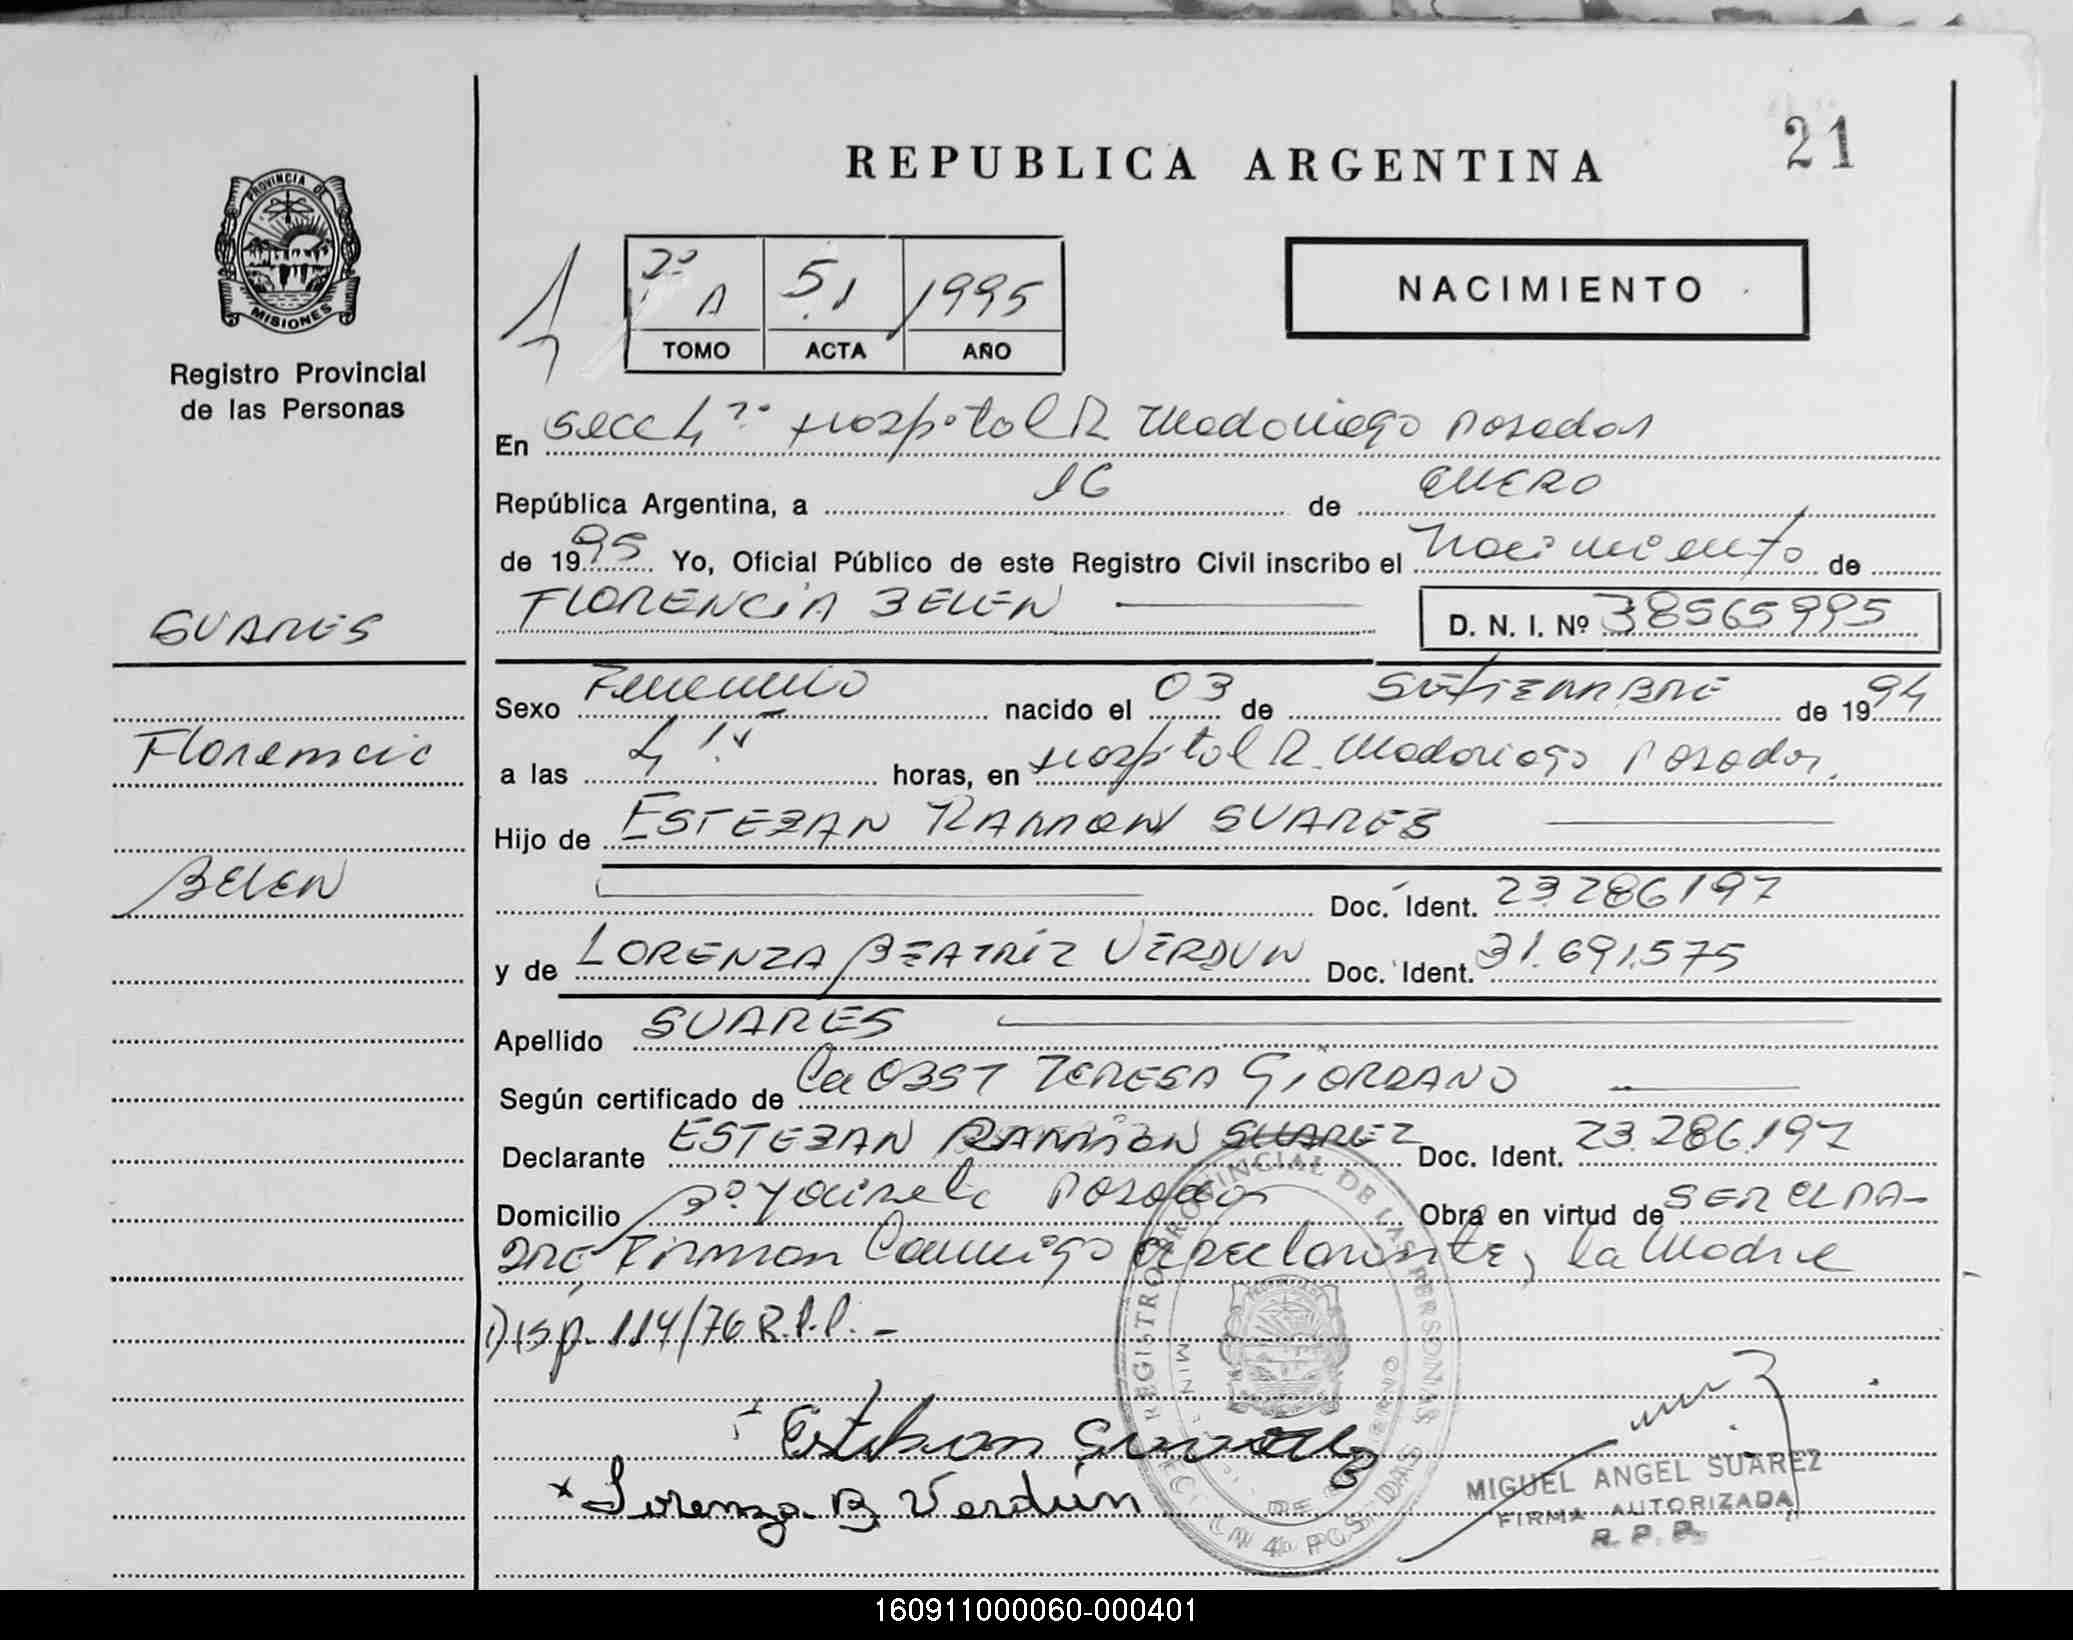 21
REPUBLICA ARGENTINA
PROVINCIA DE
MISIONES
Registro Provincial
de las Personas
2º A 51 1995
TOMO ACTA AÑO
NACIMIENTO
En Secc 4ª Hospital R Madariaga Posadas
República Argentina, a 16 de ENERO
de 1995 Yo, Oficial Público de este Registro Civil inscribo el Nacimiento de
FLORENCIA BELEN D. N. I. Nº 38565995
SUARES
Florencia
BELEN
Sexo Femenino nacido el 03 de SETIEMBRE de 1994
a las 4 horas, en Hospital R. Madariaga Posadas.
Hijo de ESTEBAN RAMON SUARES
Doc. Ident. 23.286.197
y de LORENZA BEATRIZ VERDUN Doc. Ident. 31.691.575
Apellido SUARES
Según certificado de La OBST TERESA GIORDANO
Declarante ESTEBAN RAMON SUAREZ Doc. Ident. 23.286.197
Domicilio Bº Posadas Obra en virtud de SER EL PA-
DRE, Firman Conmigo el declarante, la Madre
Disp. 114/76 R.P.P. -
Esteban Suarez
x Lorenza B Verdún
REGISTRO PROVINCIAL DE LAS PERSONAS
MIGUEL ANGEL SUAREZ
FIRMA AUTORIZADA
R. P. P.
160911000060-000401